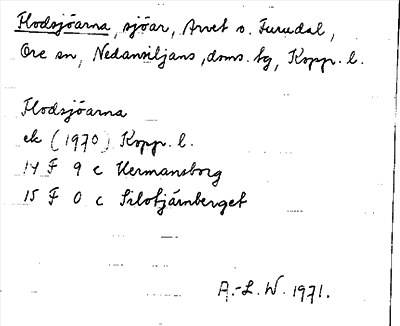 Flodsjöarna, sjöar, Arvet o. Furudal,
Ore sn, Nedansiljans, doms. hg, Kopp. l.
Flodsjöarna
ek (1970) Kopp. l.
14 F 9 c Hermansborg
15 F 0 c Pilotjärnberget
A.-L. W. 1971.